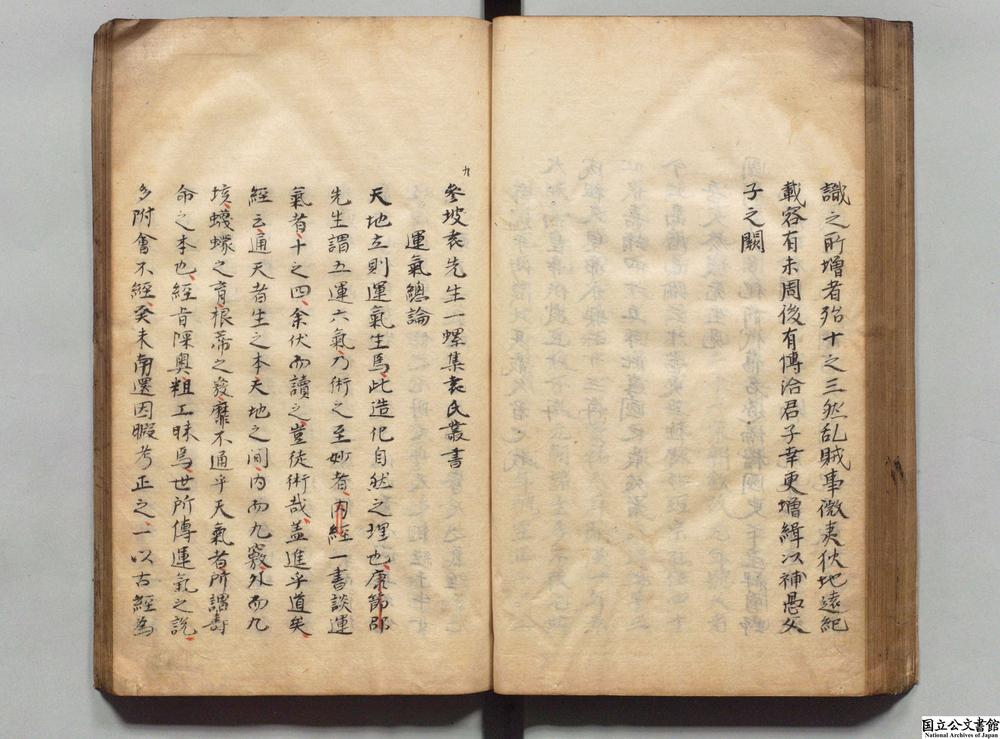 識之所增者殆十之三然乱賊事微夷狄地遠紀
載容有未周後有博洽君子幸更增緝以補愚父
子之闕
九
參坡袁先生一螺集袁氏叢書
運氣總論
天地立則運氣生焉此造化自然之理也康節邵
先生謂五運六氣乃術之至妙者內經一書談運
氣者十之四余伏而讀之豈徒術哉盖進乎道矣
經云通天者生之本天地之間內而九竅外而九
垓蠛蠓之育根荄之發靡不通乎天氣者所謂壽
命之本也經旨深奥粗工昧焉世所傳運氣之說
多附會不經癸未南還因暇考正之一以古經為
国立公文書館
National Archives of Japan